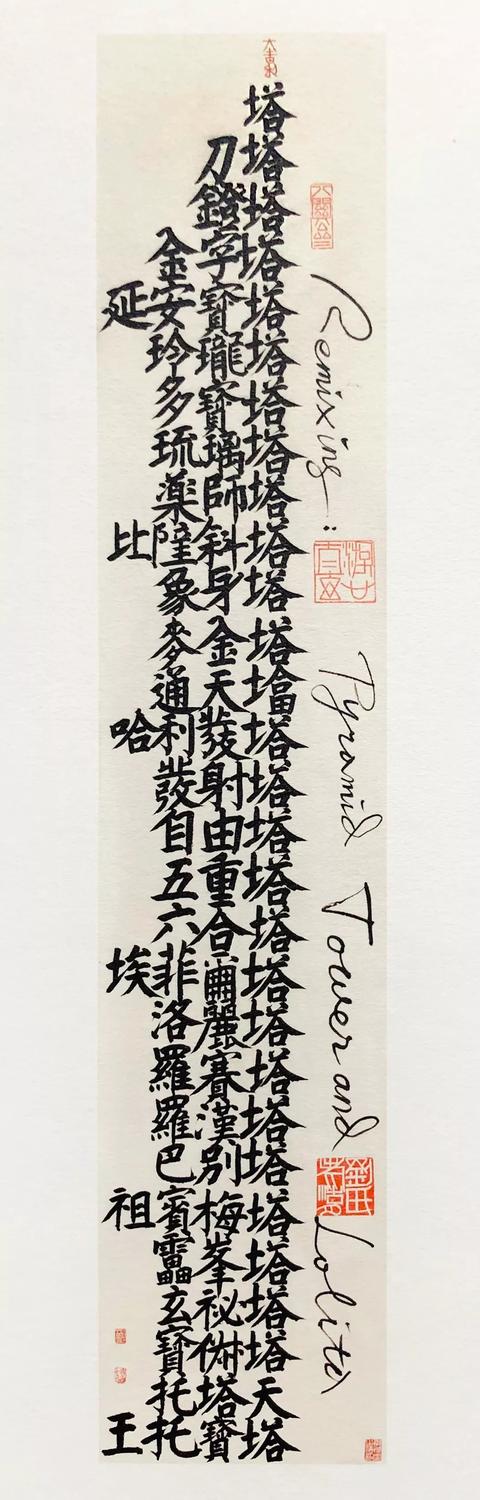 塔
刀塔
鐙塔
金字塔
延安寶塔
玲瓏塔
多寶塔
琉璃塔
藥師塔
比斜塔
象身塔
麥金塔
通天塔
哈利發塔
發射塔
自由塔
五重塔
六合塔
埃菲爾塔
洛麗塔
羅賽塔
羅漢塔
巴別塔
祖賓梅塔
靁峯塔
玄祕塔
寶俶塔
托塔天
王托寶塔
Remixing: Pyramid Tower and Lolita